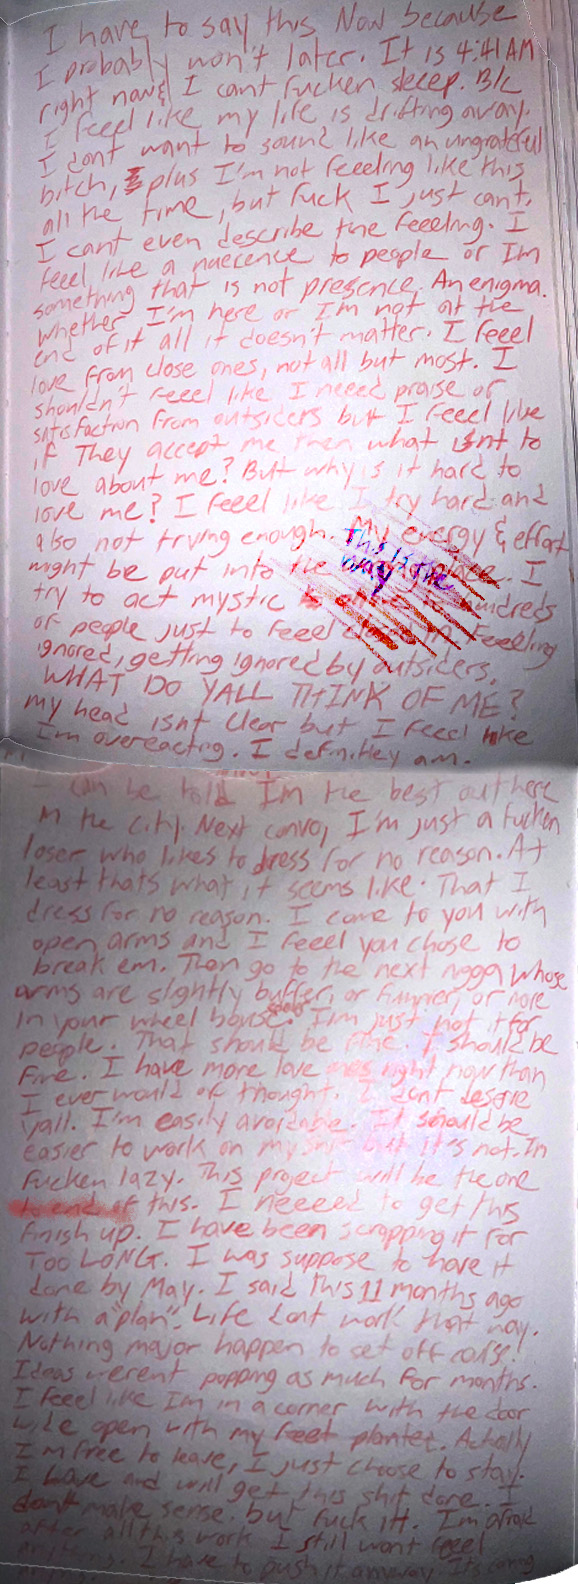 I have to say this Now because
I probably won't later. It is 4:41 AM
right now & I cant fucken sleep. B/c
I feeel like my life is drifting away.
I dont want to sound like an ungrateful
bitch, plus I'm not feeeling like this
all the time, but fuck I just cant.
I cant even describe the feeeling. I
feeel like a nuecence to people or Im
something that is not presence. An enigma.
Whether I'm here or I'm not at the
end of it all it doesn't matter. I feeel
love from close ones, not all but most. I
shouldn't feeel like I neeed praise or
satisfaction from outsiders but I feeel like
if They accept me then what isnt to
love about me? But why is it hard to
love me? I feeel like I try hard and
also not trying enough. My energy & effort
might be put into the This is the way I
try to act mystic hundreds
of people just to feeel feeeling
ignored, getting ignored by outsiders.
WHAT DO YALL THINK OF ME?
my head isnt clear but I feeel like
I'm overeacting. I definitley am.
I can be told Im the best out here
in the city. Next convo, I'm just a fucken
loser who likes to dress for no reason. At
least thats what it seems like. That I
dress for no reason. I come to you with
open arms and I feeel you chose to
break em. Then go to the next nigga whose
arms are slightly buffer, or funnier, or more
in your wheel house. I'm just not it for
people. That should be fine. I should be
fine. I have more love right now than
I ever would of thought. I dont deserve
yall. I'm easily avoidable. It should be
easier to work on my shit but it's not. Im
fucken lazy. This project will be the one
to end of this. I neeeed to get this
finish up. I have been scrapping it for
TOO LONG. I was suppose to have it
done by May. I said This 11 months ago
with a "plan". Life dont work that way.
Nothing major happen to set off
Ideas werent popping as much for months.
I feeel like Im in a corner with the door
wide open with my feet planted. Actually
I'm free to leave, I just choose to stay.
I have and will get this shit done. I
dont make sense. but fuck it. I'm afraid
after all this work I still wont feeel
anything. I have to push it anyway. Its